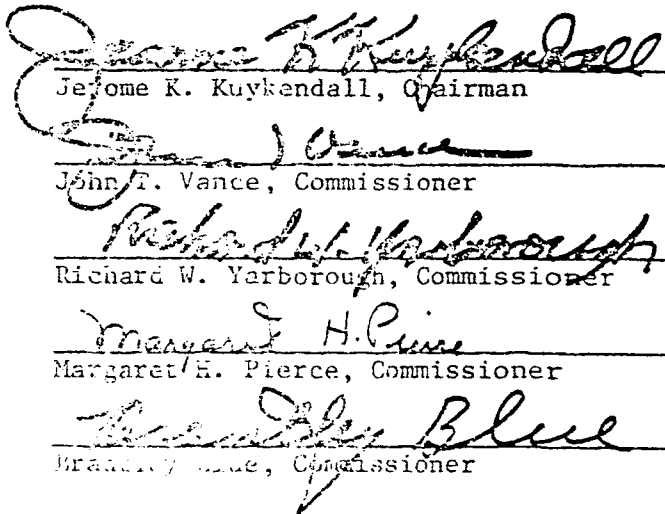 Jerome K Kuykendall
Jerome K. Kuykendall, Chairman
John T. Vance, Commissioner
Richard W. Yarborough
Richard W. Yarborough, Commissioner
Margaret H. Pierce
Margaret H. Pierce, Commissioner
Brantley Blue
Blue, Commissioner